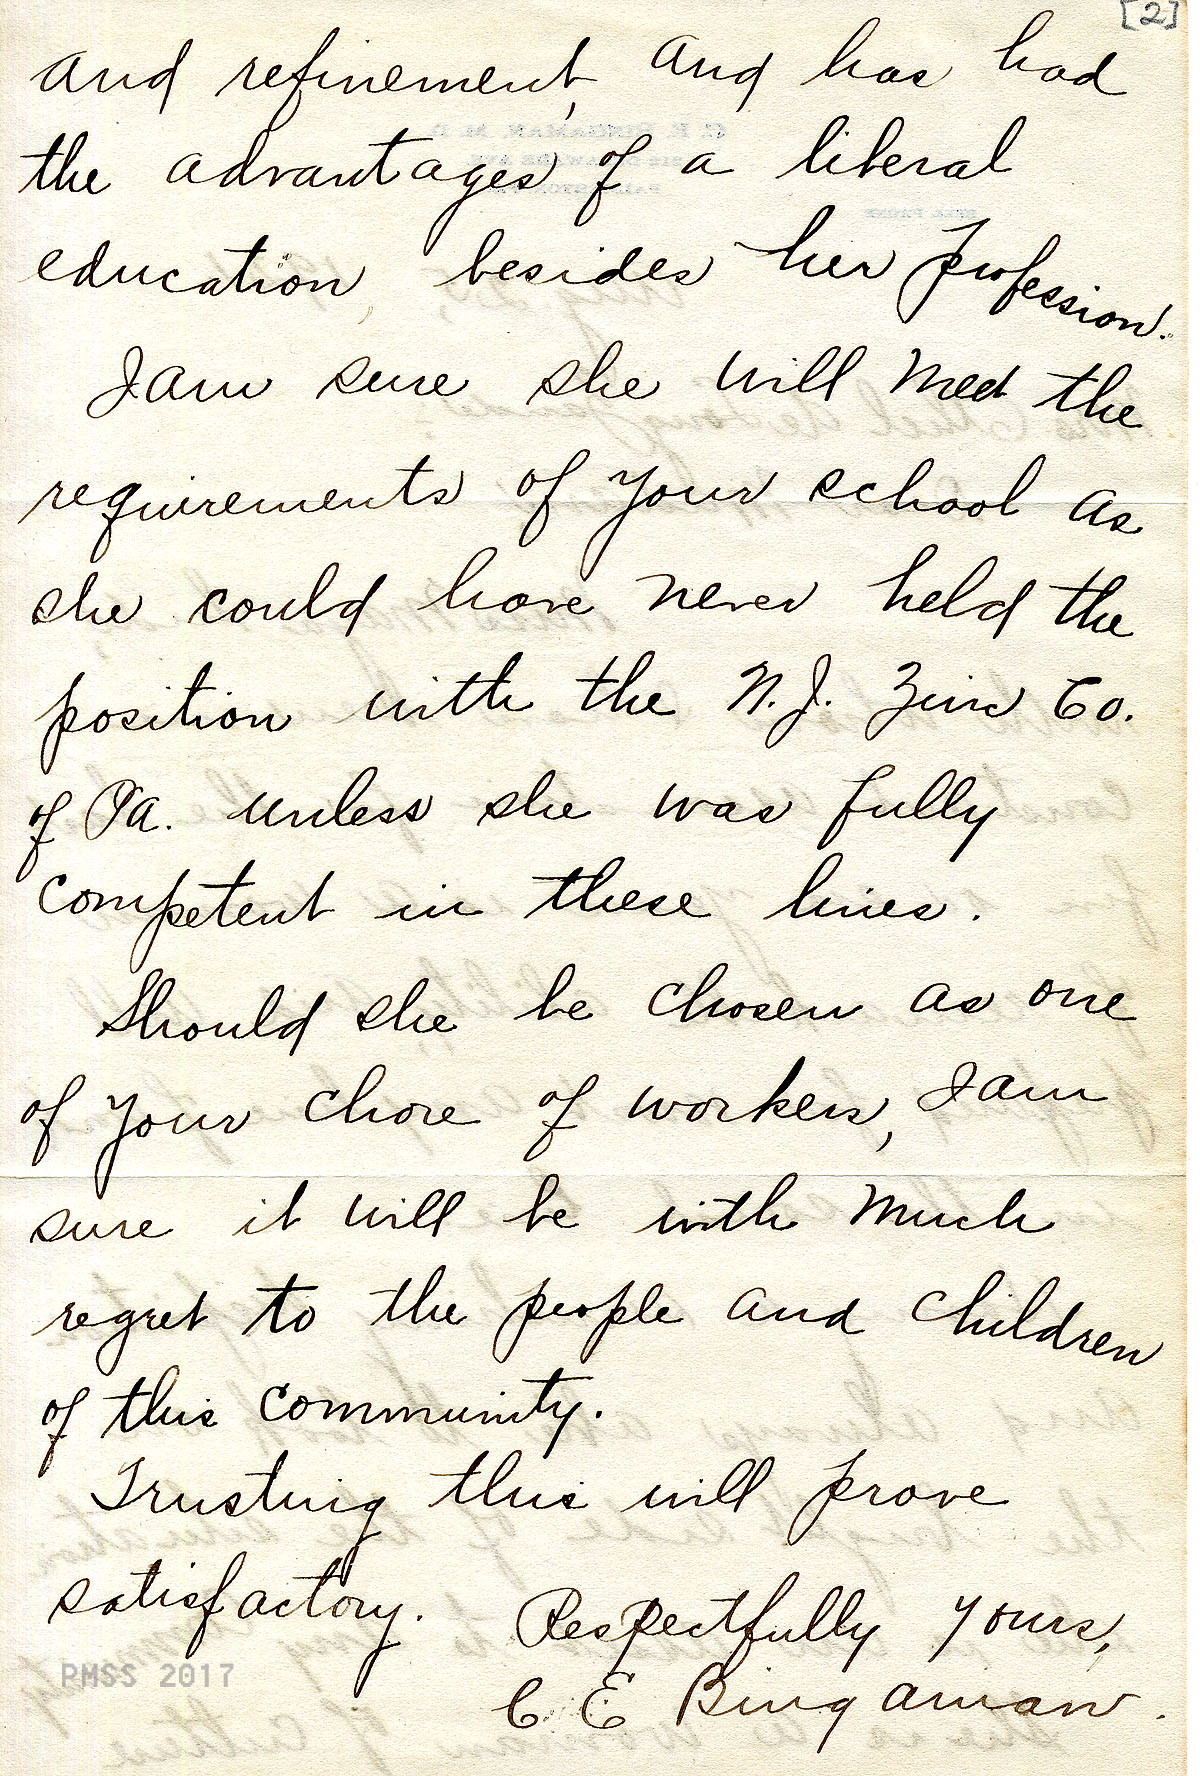 [2]
and refinement, and has had
the advantages of a liberal
education, besides her profession.
I am sure she will meet the
requirements of your school as
she could have never held the
position with the N.J. Zinc Co.
of Pa. unless she was fully
competent in these lines.
Should she be chosen as one
of your chore of workers, I am
sure it will be with much
regret to the people and children
of this community.
Trusting this will prove
satisfactory.
Respectfully yours,
C E Bingaman.
PMSS 2017